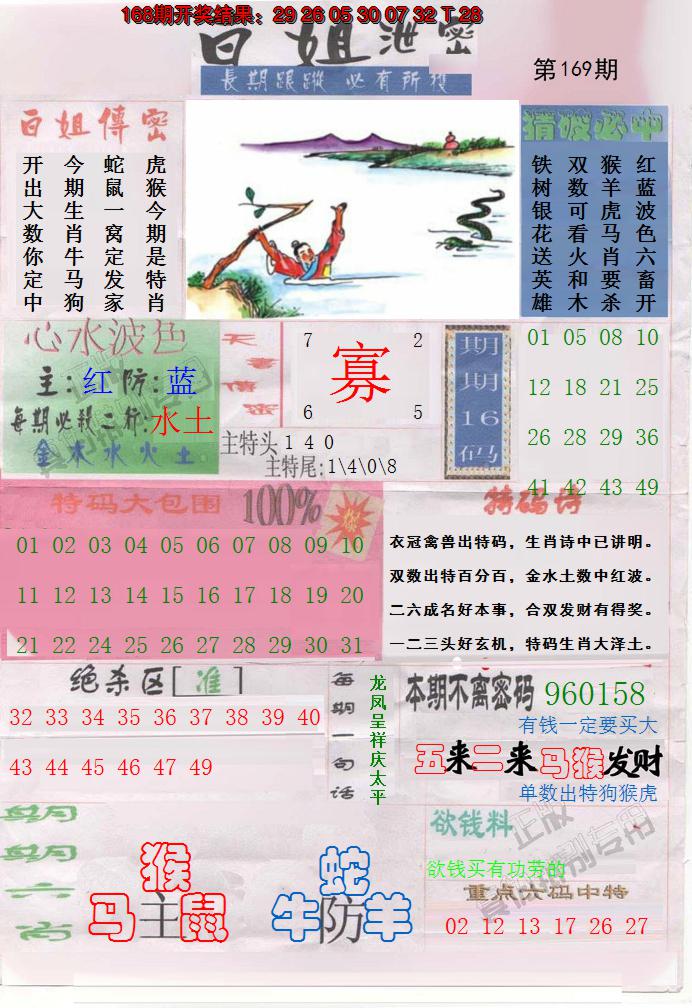 168期开奖结果：29 26 05 30 07 32 T 28
白姐泄密
第169期
長期跟蹤 必有所獲
白姐傳密
虎猴今期是特肖
蛇鼠一窝定发家
今期生肖牛马狗
开出大数你定中
猜波必中
红蓝波色六畜开
猴羊虎马肖要杀
双数可看火和木
铁树银花送英雄
心水波色
主:红 防:蓝
每期必殺二行:水土
金木水火土
天書信密
7 2
寡
6 5
主特头140
主特尾:1\4\0\8
期期16码
01 05 08 10
12 18 21 25
26 28 29 36
41 42 43 49
特码大包围 100%
01 02 03 04 05 06 07 08 09 10
11 12 13 14 15 16 17 18 19 20
21 22 24 25 26 27 28 29 30 31
特码诗
衣冠禽兽出特码，生肖诗中已讲明。
双数出特百分百，金水土数中红波。
二六成名好本事，合双发财有得奖。
一二三头好玄机，特码生肖大泽土。
绝杀区[准]
32 33 34 35 36 37 38 39 40
43 44 45 46 47 49
每期一句话
龙凤呈祥庆太平
本期不离密码 960158
有钱一定要买大
五来二来马猴发财
单数出特狗猴虎
每期六肖
猴
马主鼠
蛇
牛防羊
欲钱料
欲钱买有功劳的
重点六码中特
02 12 13 17 26 27